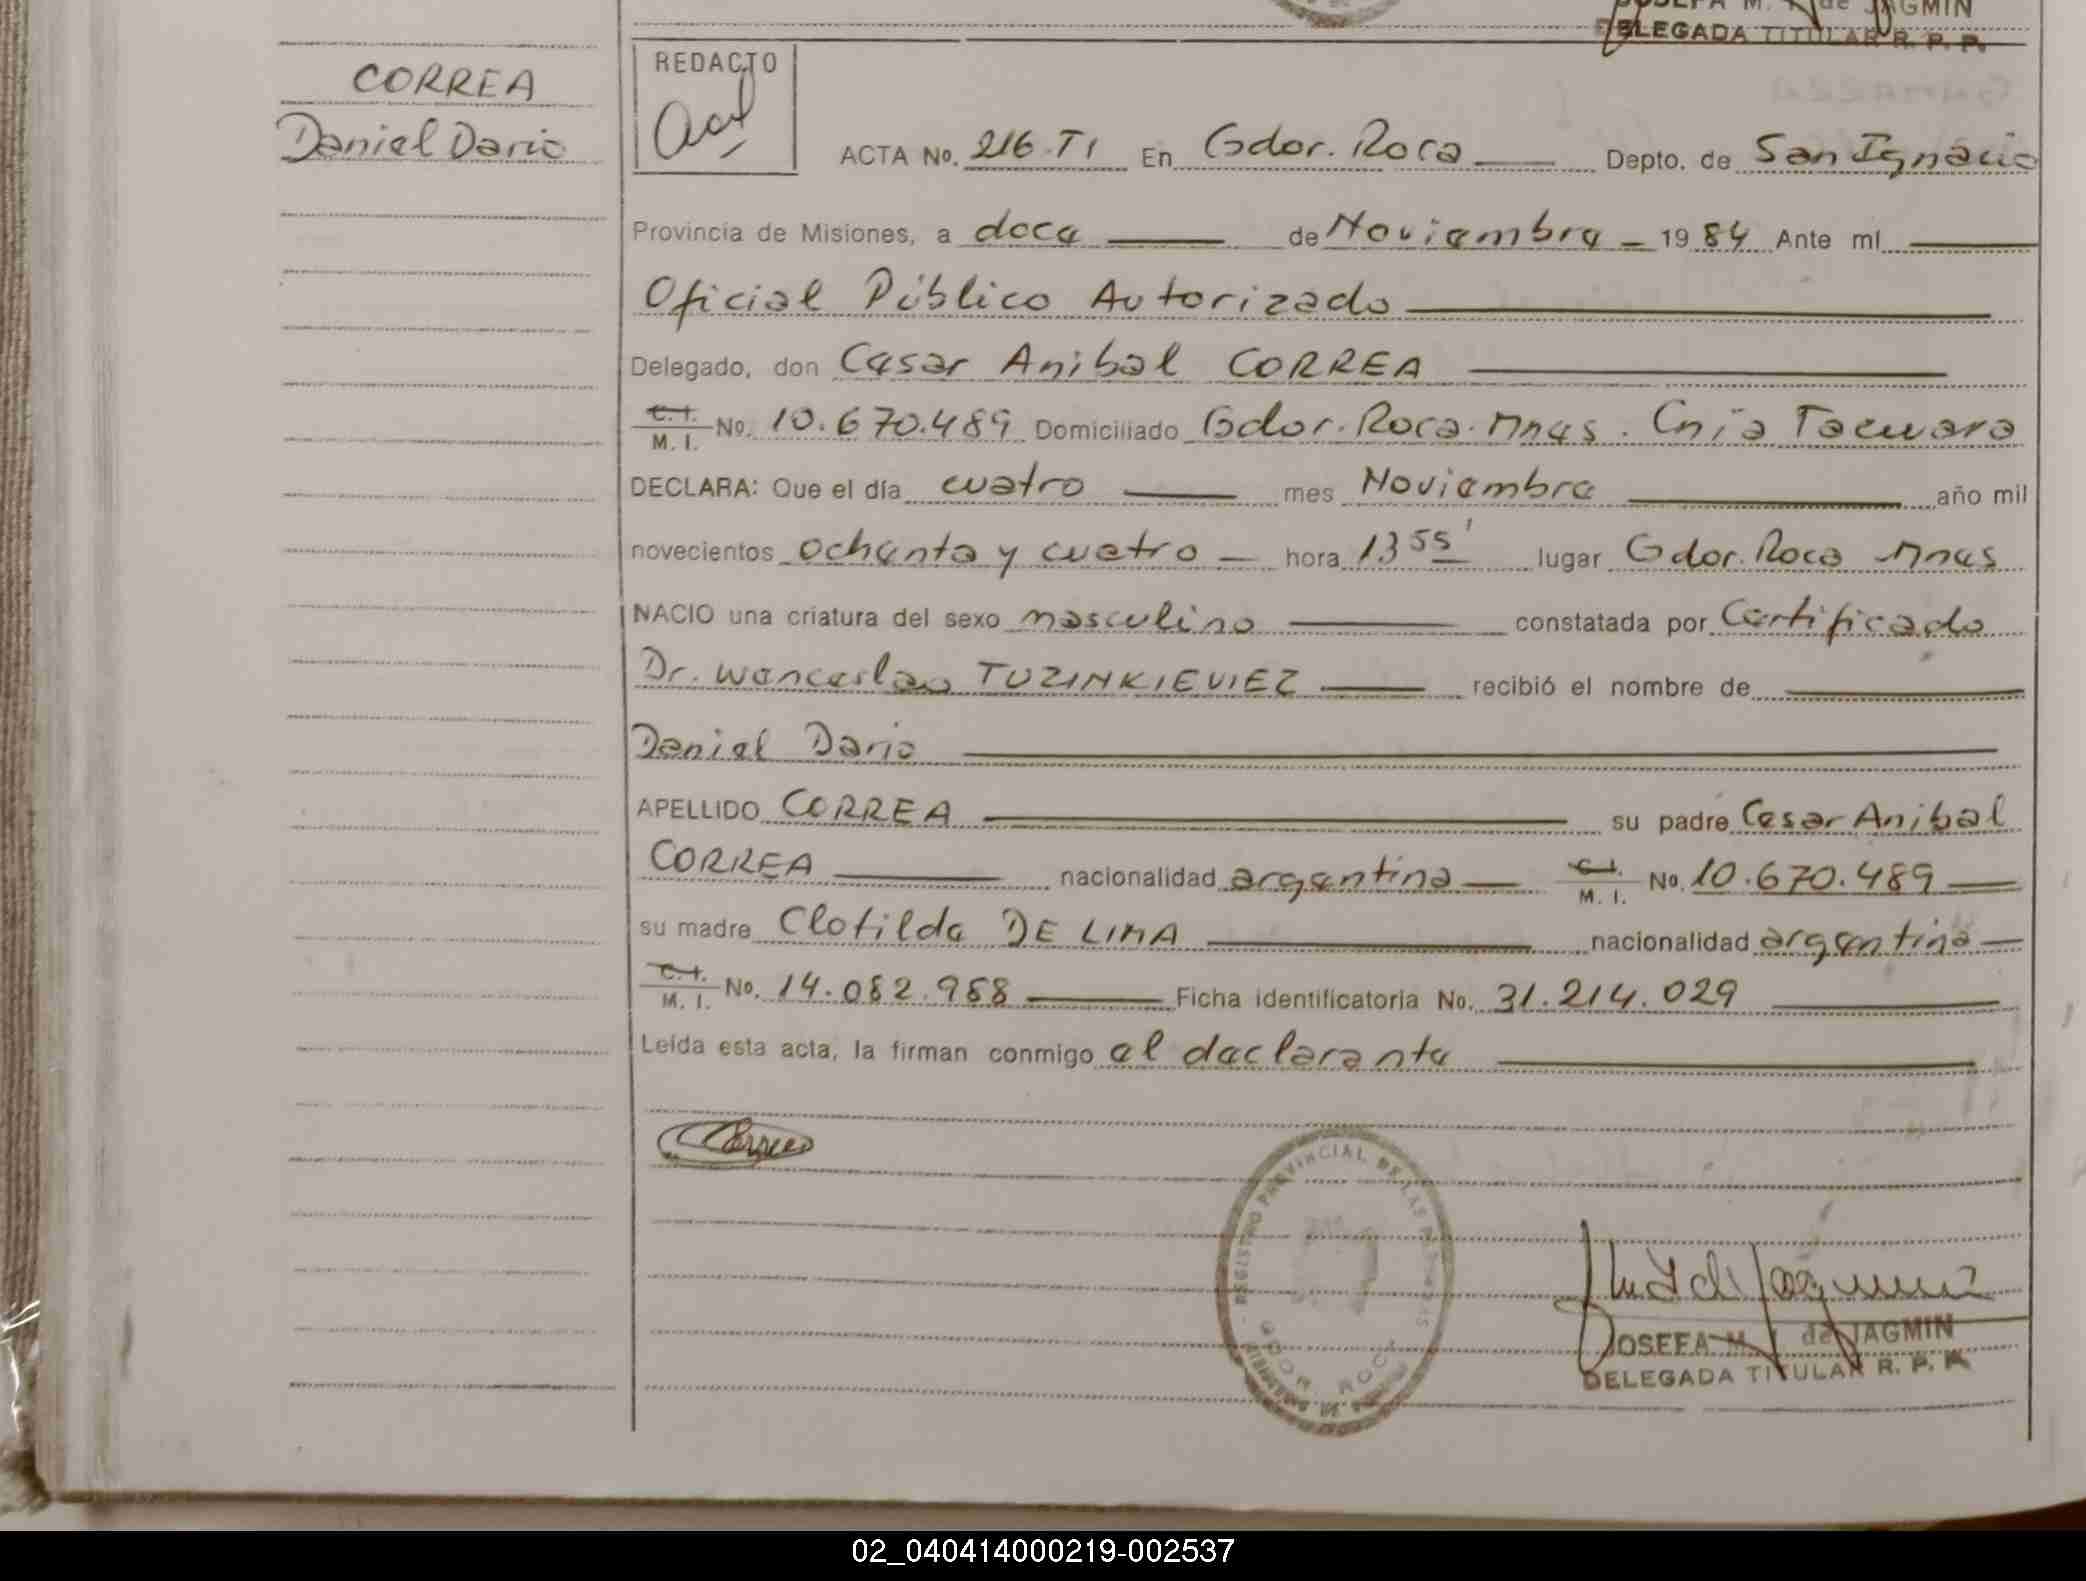 JOSEFA M. de JAGMIN
DELEGADA TITULAR R. P. P.
CORREA
Daniel Dario
REDACTO
ACTA No. 216 TI En Gdor. Roca Depto. de San Ignacio
Provincia de Misiones, a doce de Noviembre 1984 Ante mí
Oficial Público Autorizado
Delegado, don Cesar Anibal CORREA
C. I. M. I. No. 10.670.489 Domiciliado Gdor. Roca. Mnes. Cnia Tacuara
DECLARA: Que el día cuatro mes Noviembre año mil
novecientos ochenta y cuatro hora 13 55' lugar Gdor. Roca Mnes
NACIO una criatura del sexo masculino constatada por Certificado
Dr. Wenceslao TUZINKIEVIEZ recibió el nombre de
Daniel Dario
APELLIDO CORREA su padre Cesar Anibal
CORREA nacionalidad argentina C. I. M. I. No. 10.670.489
su madre Clotilde DE LIMA nacionalidad argentina
C. I. M. I. No. 14.082.968 Ficha identificatoria No. 31.214.029
Leída esta acta, la firman conmigo el declarante
Correa
REGISTRO PROVINCIAL DE LAS PERSONAS
GDOR. ROCA
JOSEFA M. de JAGMIN
DELEGADA TITULAR R. P. P.
02_040414000219-002537